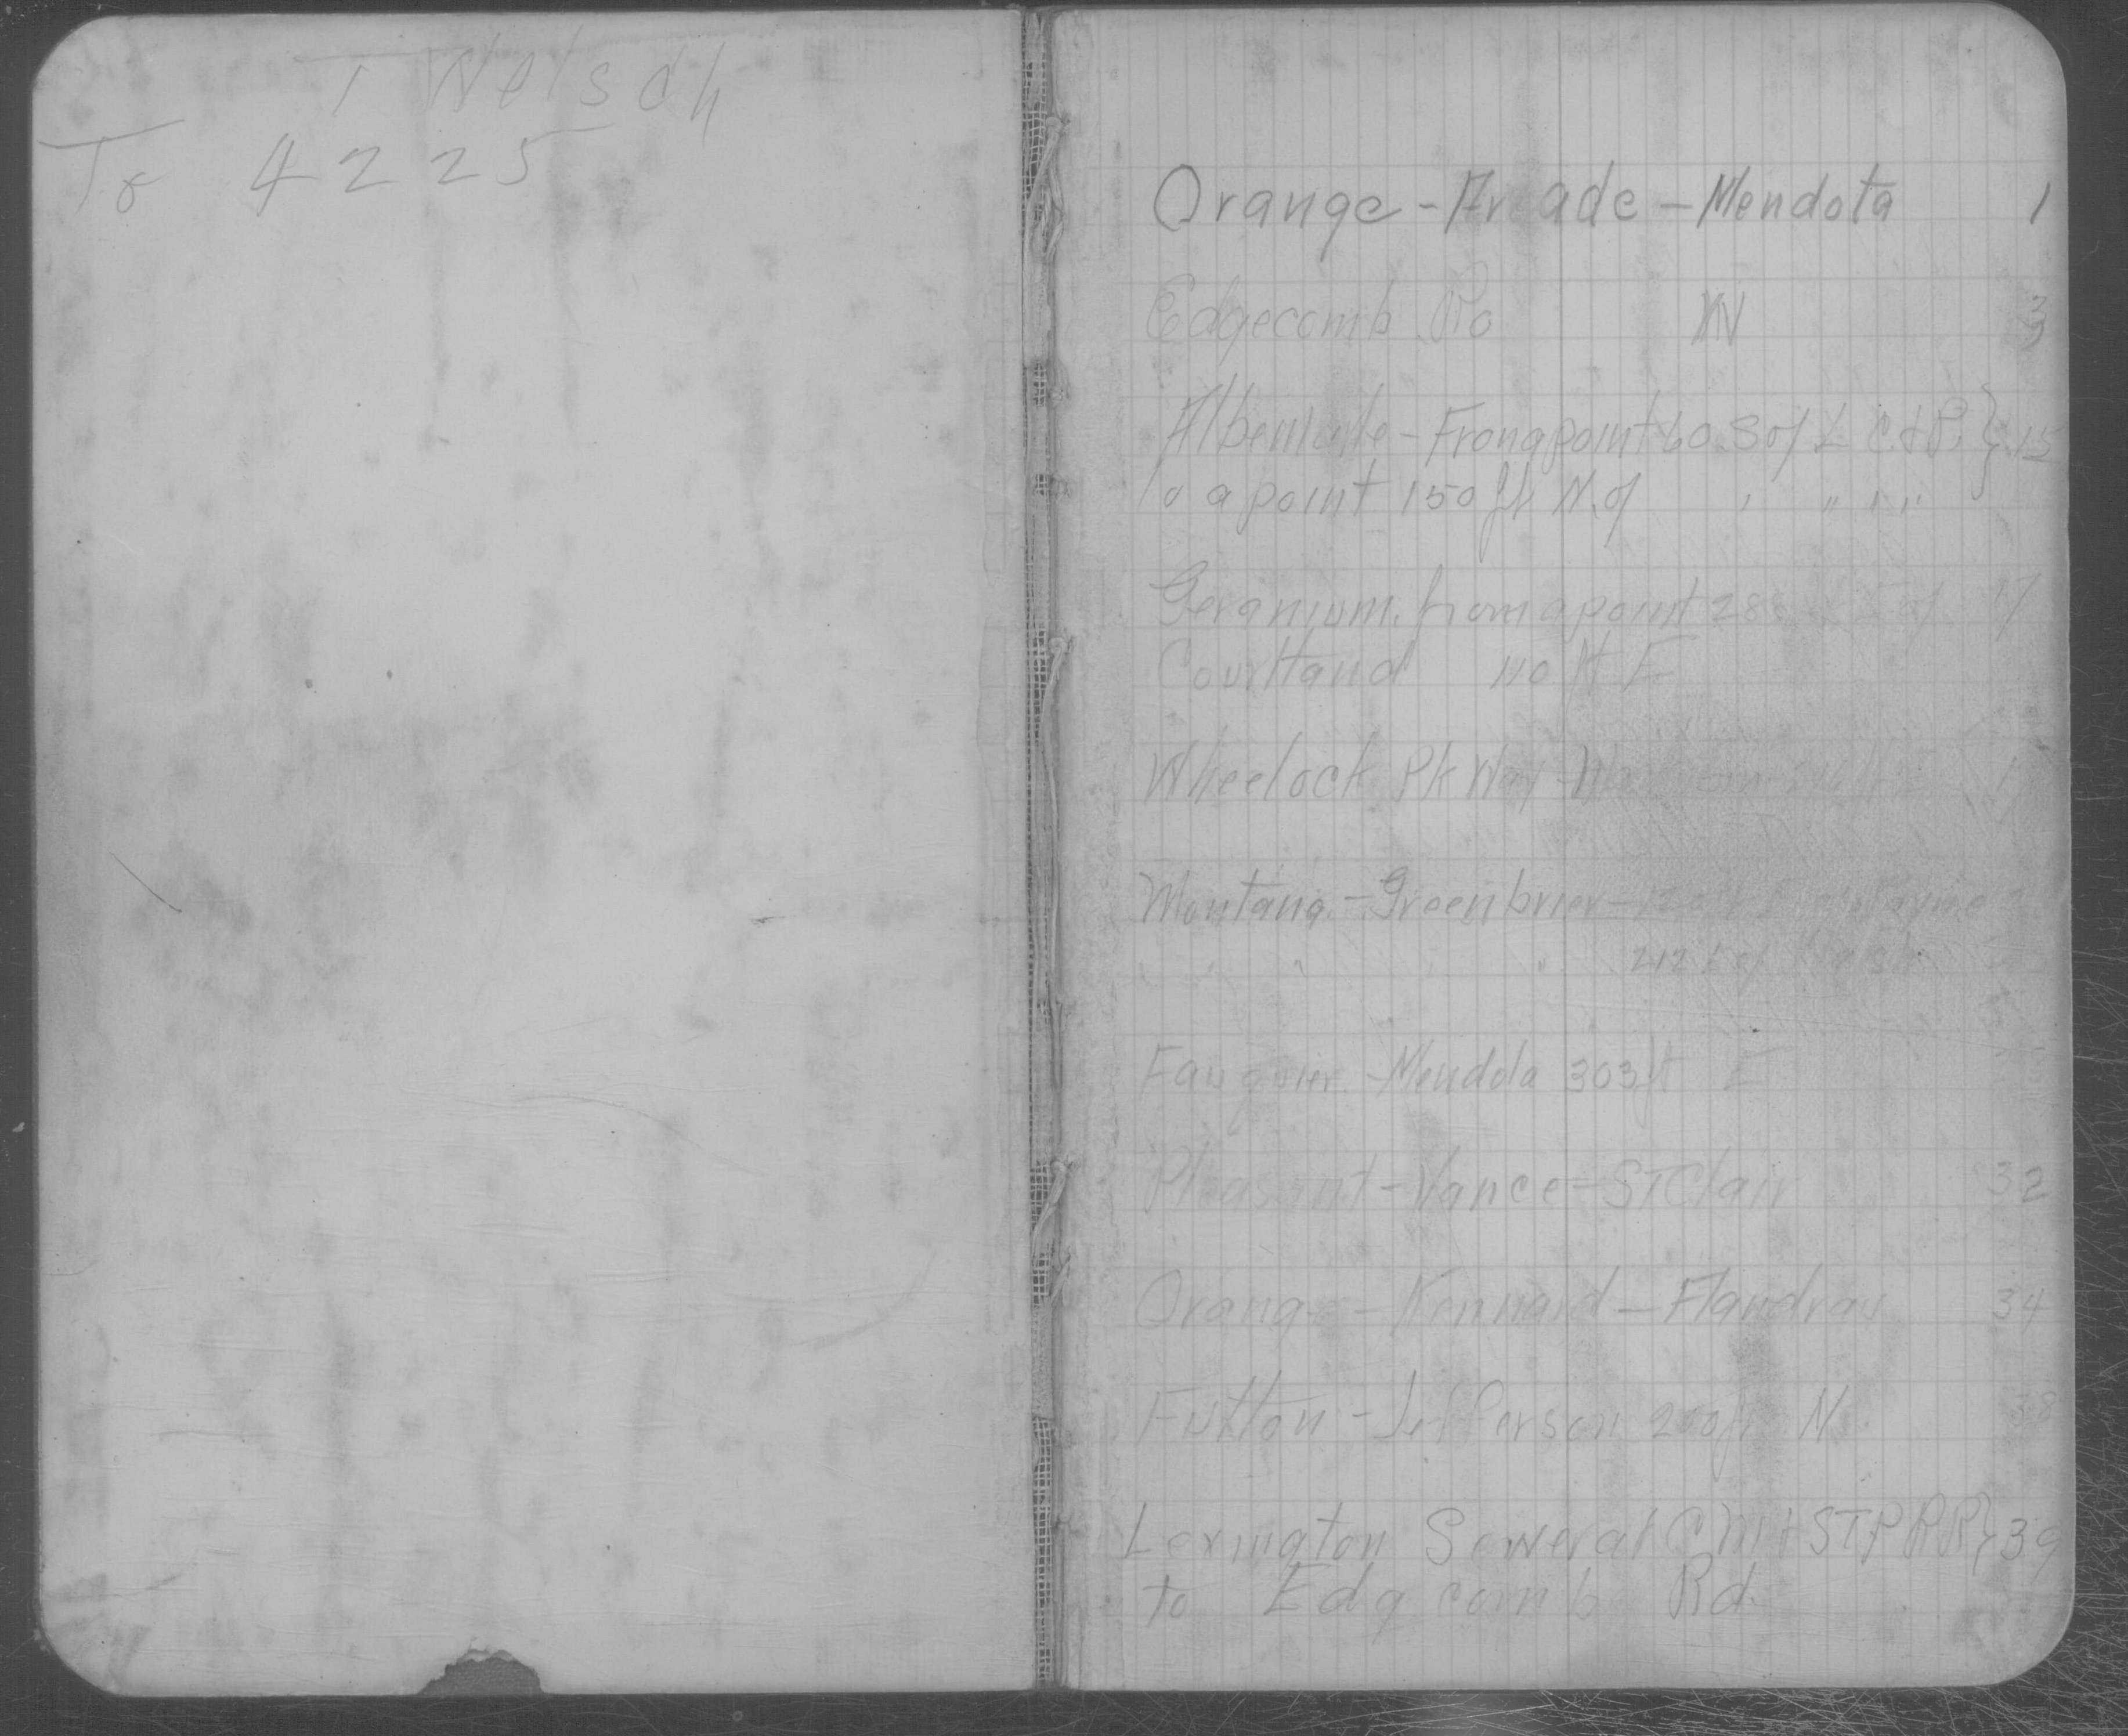 T Nelson
To 4225
Orange - Arcade - Mendota 1
Edgecomb Ro W 3
Albemarle - From a point 60 S of L C & P. } 15
to a point 150 ft N. of " " " "
Geranium. from a point 28 17
Courtland 110 ft E
Wheelock Pk Way
Montana - Greenbrier
212 E of
Fauquier - Mendota 303 ft E
Pleasant - Vance - St Clair 32
Orange - Kennard - Flandrau 34
Fulton - Jefferson 200 ft N. 38
Lexington Sewer at C M & ST P RR } 39
to Edgcomb Rd.